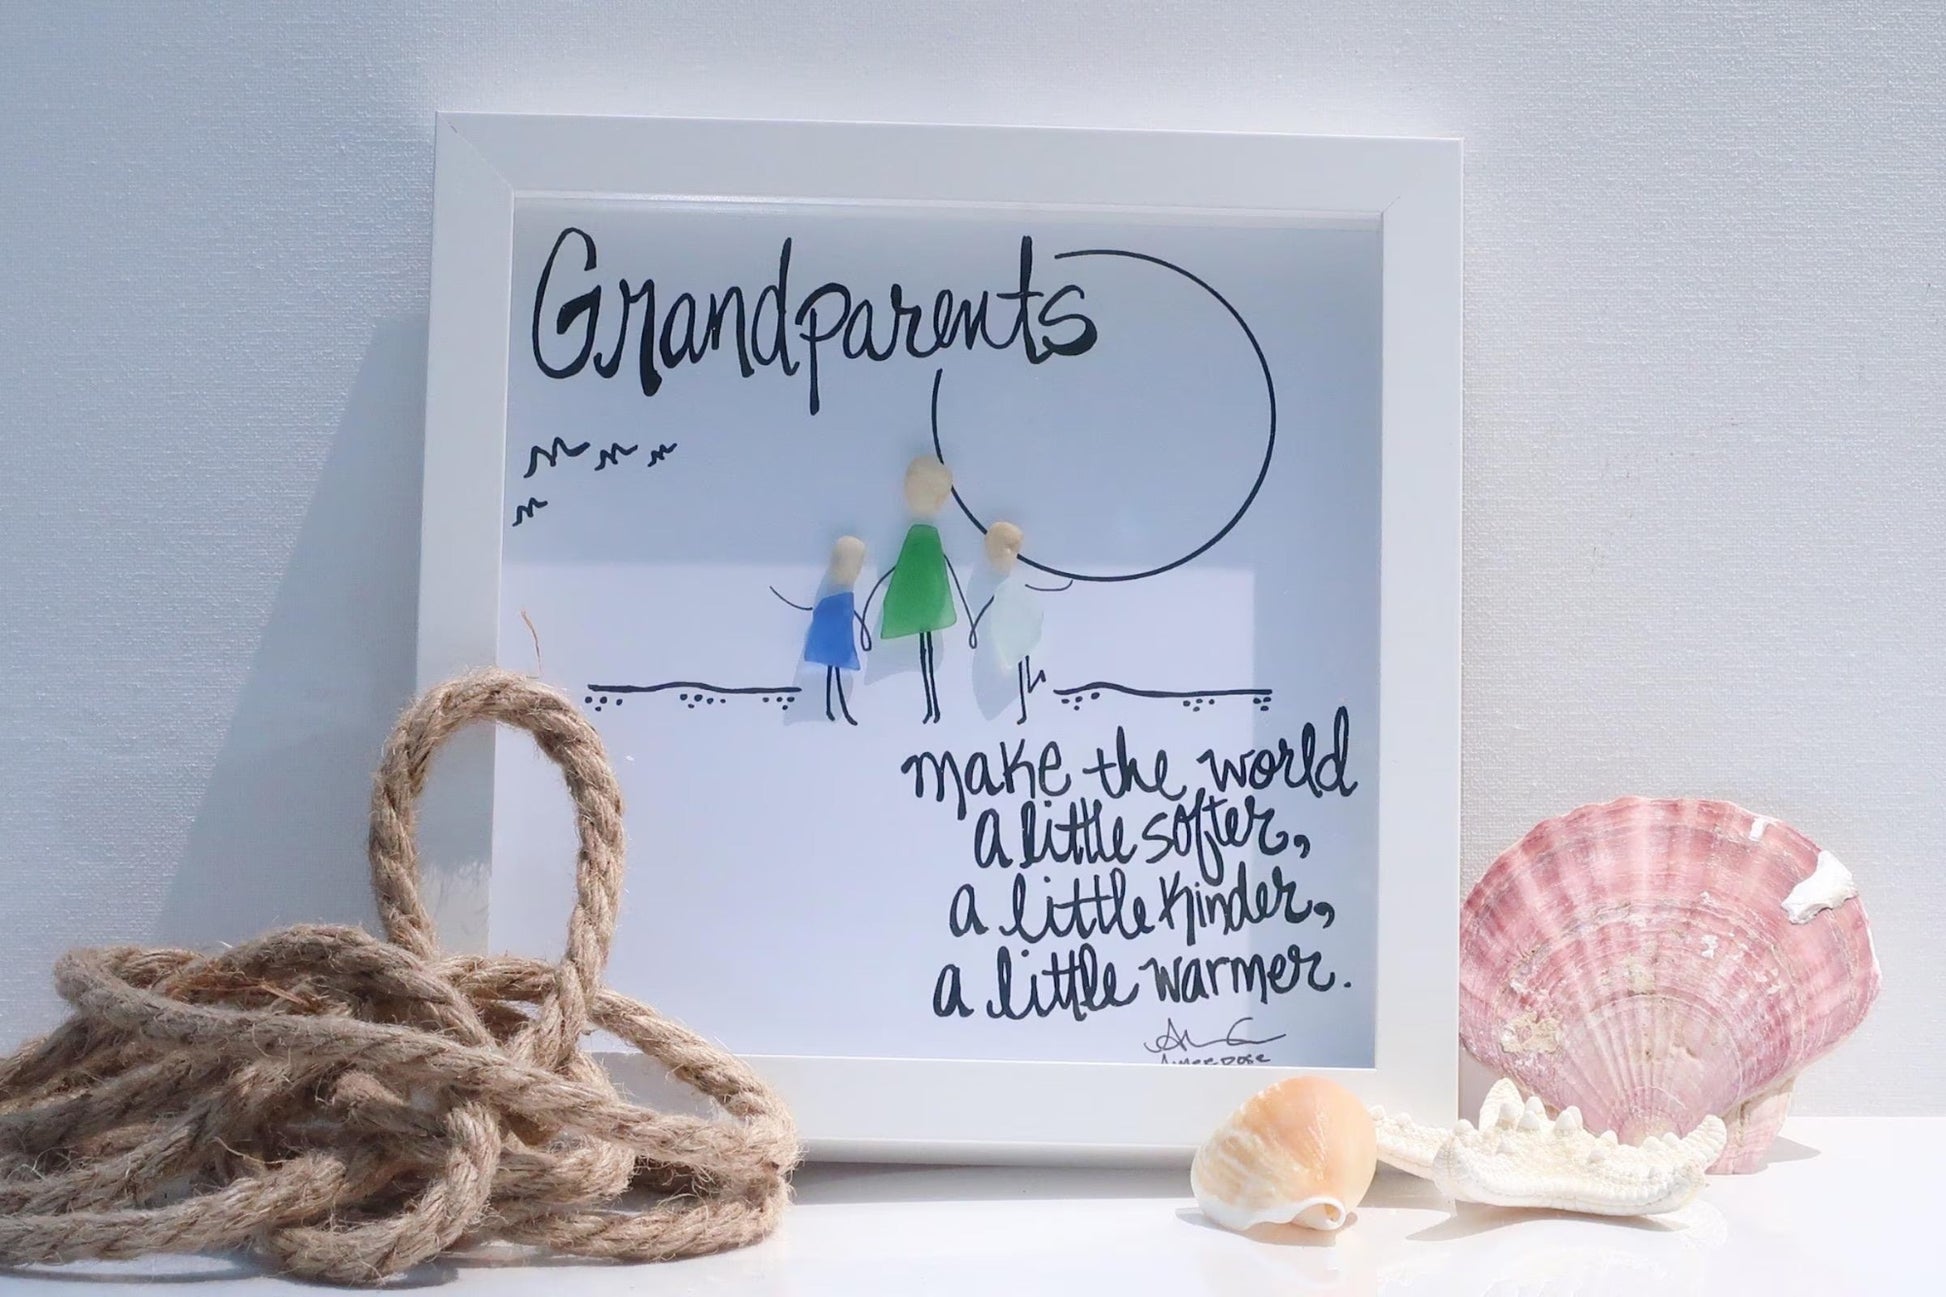 Grandparents
make the world
a little softer,
a little kinder,
a little warmer.